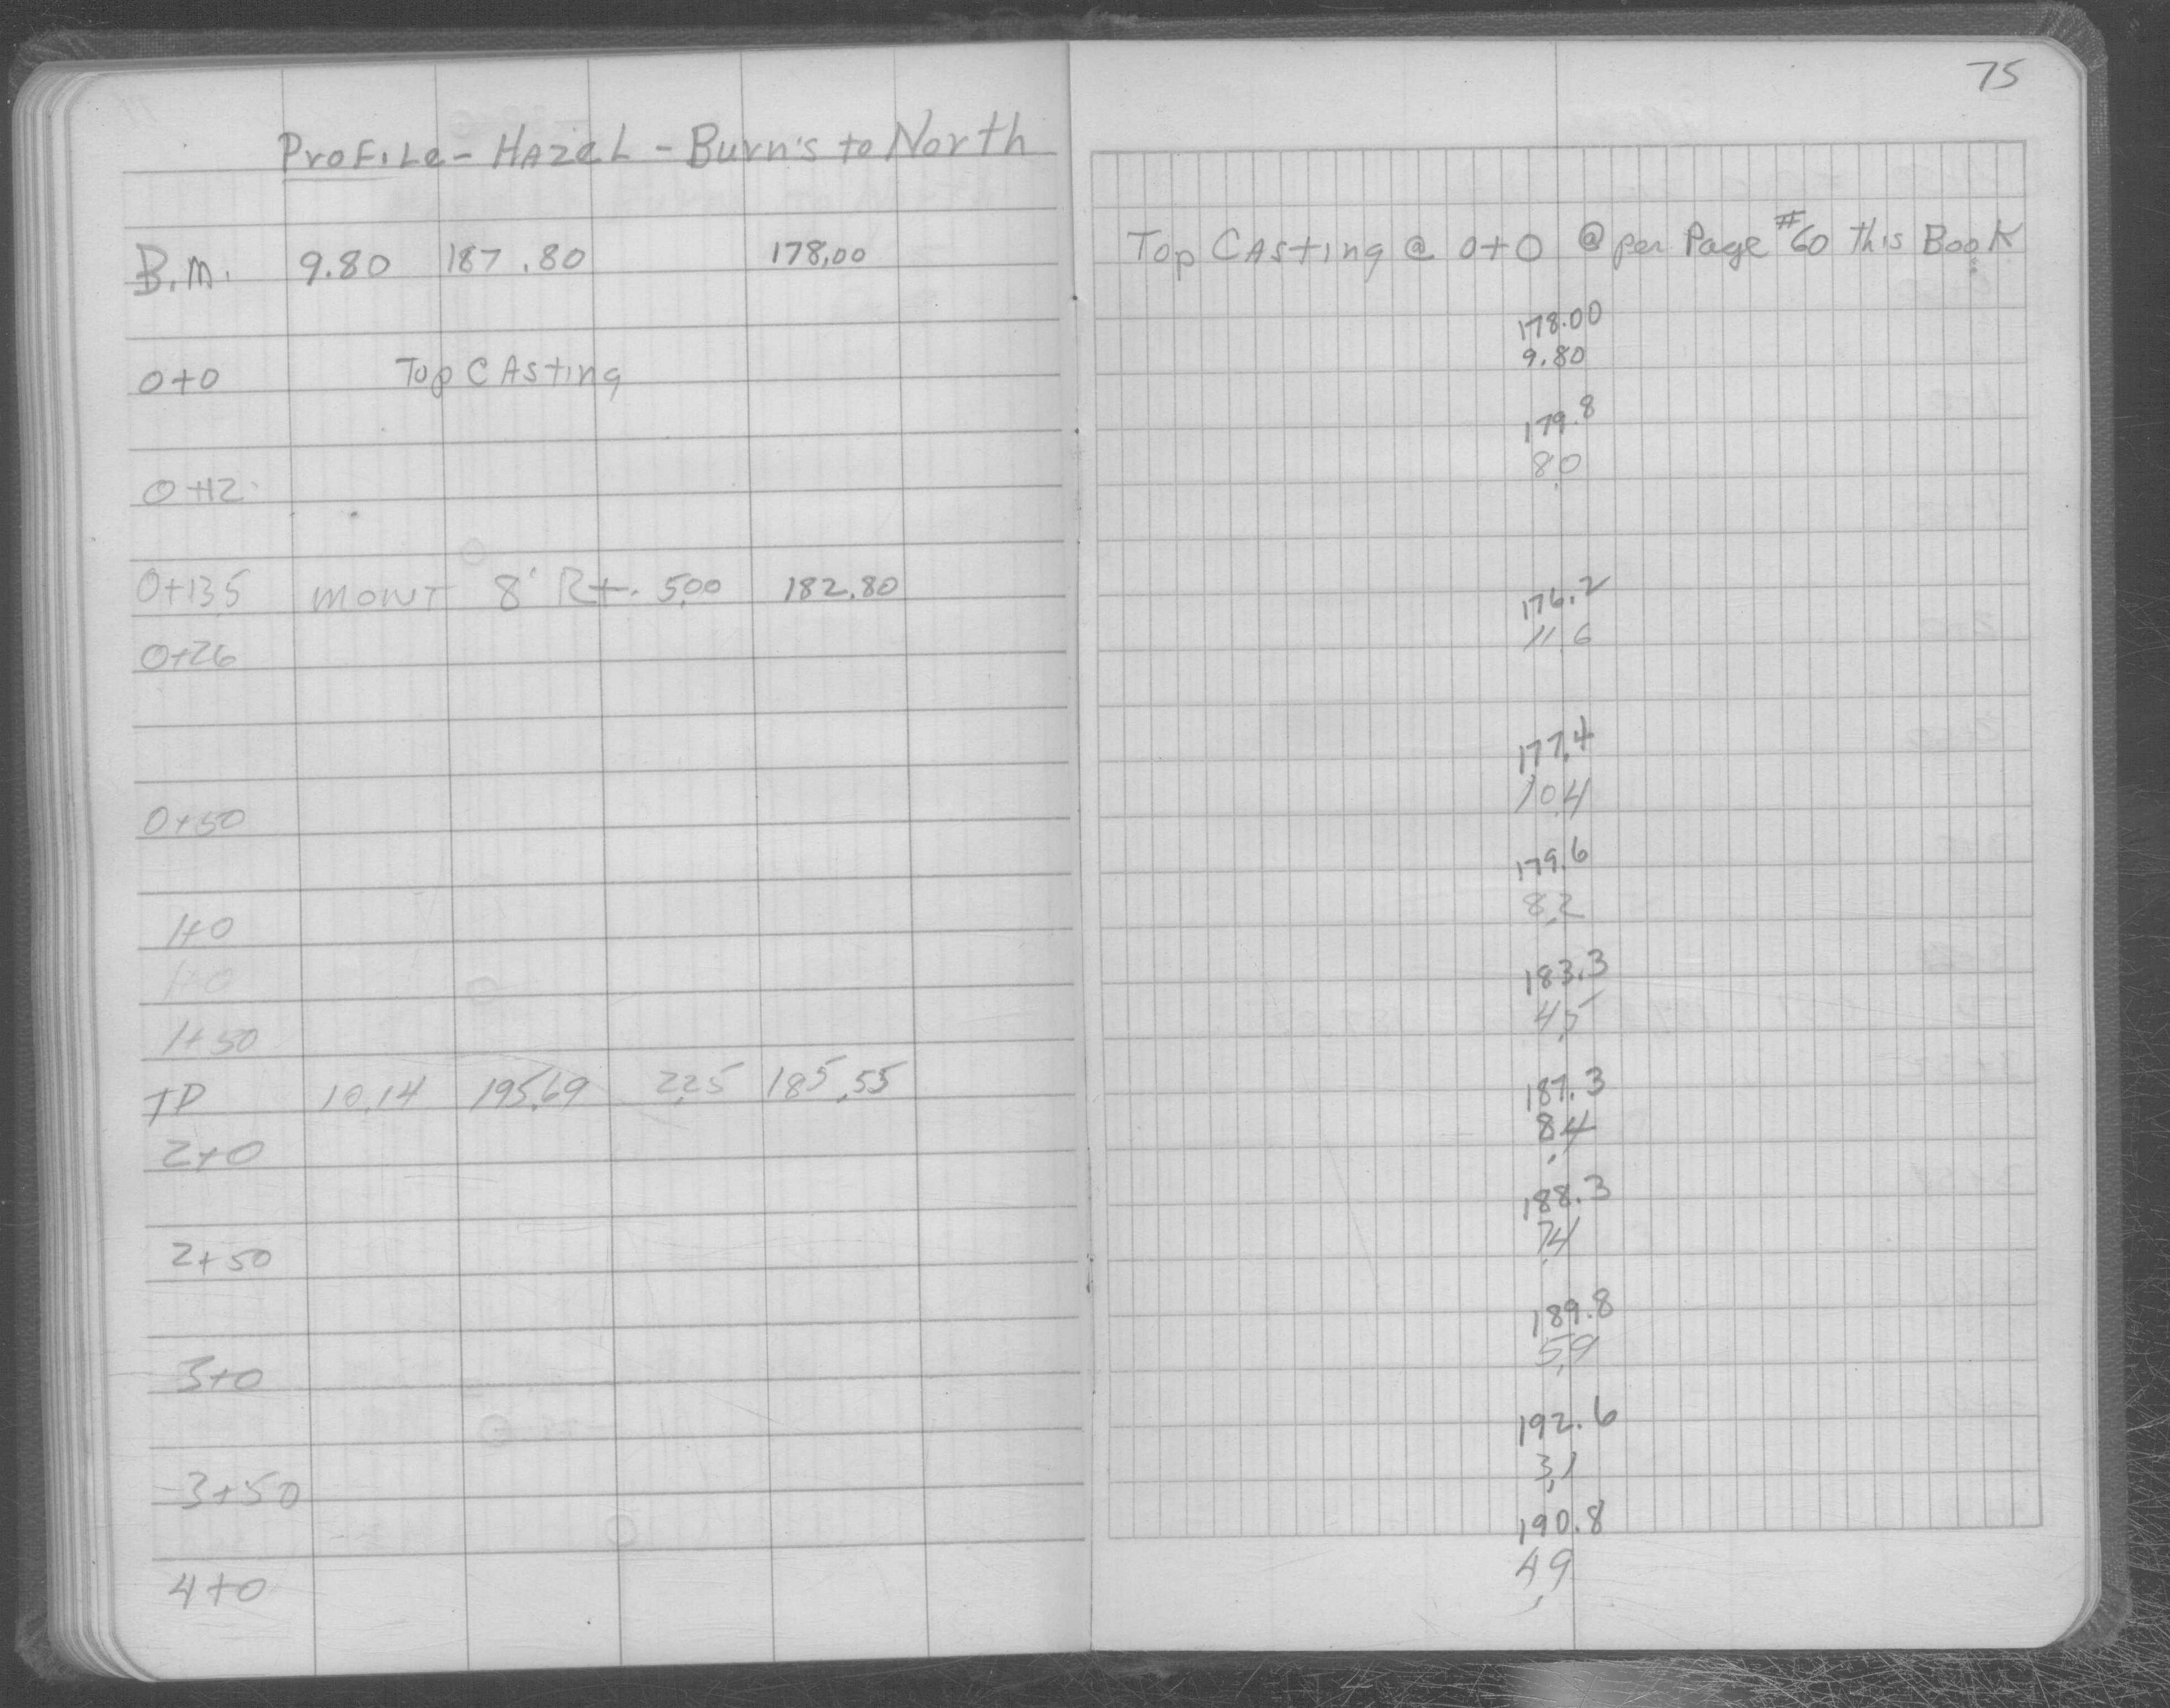 75
Profile - Hazel - Burn's to North
B.M. 9.80 187.80 178.00 Top Casting @ 0+0 @ per Page #60 this Book
178.00
0+0 Top Casting 9.80
179.8
0+12 8.0
0+13.5 MONT 8' Rt. 5.00 182.80 176.2
0+26 11.6
177.4
0+50 10.4
179.6
1+0 8.2
1+0 183.3
1+50 4.5
TP 10.14 195.69 2.25 185.55 187.3
2+0 8.4
188.3
2+50 7.4
189.8
3+0 5.9
192.6
3+50 3.1
190.8
4+0 4.9